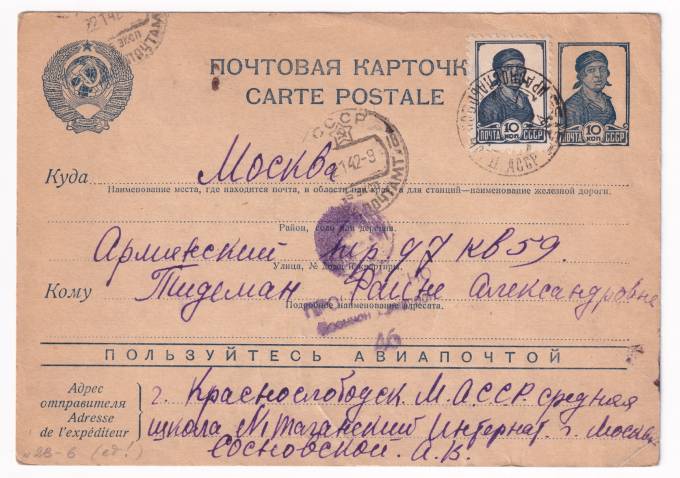 ПОЧТОВАЯ КАРТОЧК
CARTE POSTALE
ПОЧТА 10 КОП СССР
ПОЧТА 10 КОП СССР
СССР
Куда Москва
Наименование места, где находится почта, и области или края, а для станций—наименование железной дороги.
Район, село или деревня.
Армянский пер. д 7 кв 59.
Улица, № дома и квартиры.
Кому Тидеман Фаине Александровне
Подробное наименование адресата.
46
ПОЛЬЗУЙТЕСЬ АВИАПОЧТОЙ
Адрес отправителя
Adresse de l'expéditeur
г. Краснослободск М.АССР. средняя
школа №1 Таганский Интернат. г. Москвы
Сосновской. А.В.